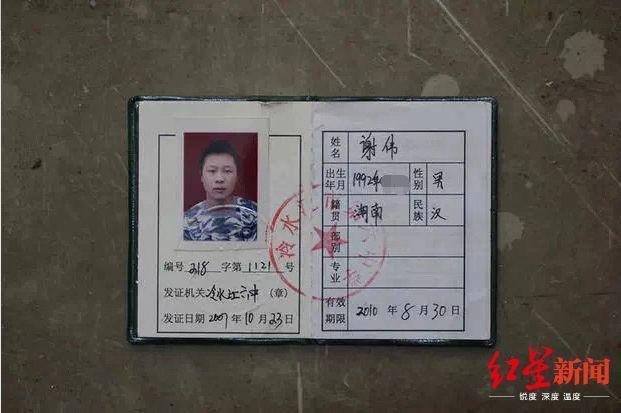 编号 218 字第 1121 号
发证机关 冷水江六中 (章)
发证日期 2007年 10月 23日
姓名 谢伟
出生年月 1992年 性别 男
籍贯 湖南 民族 汉
部别
专业
有效期限 2010 年 8 月 30 日
冷水
红星新闻
锐度 深度 温度